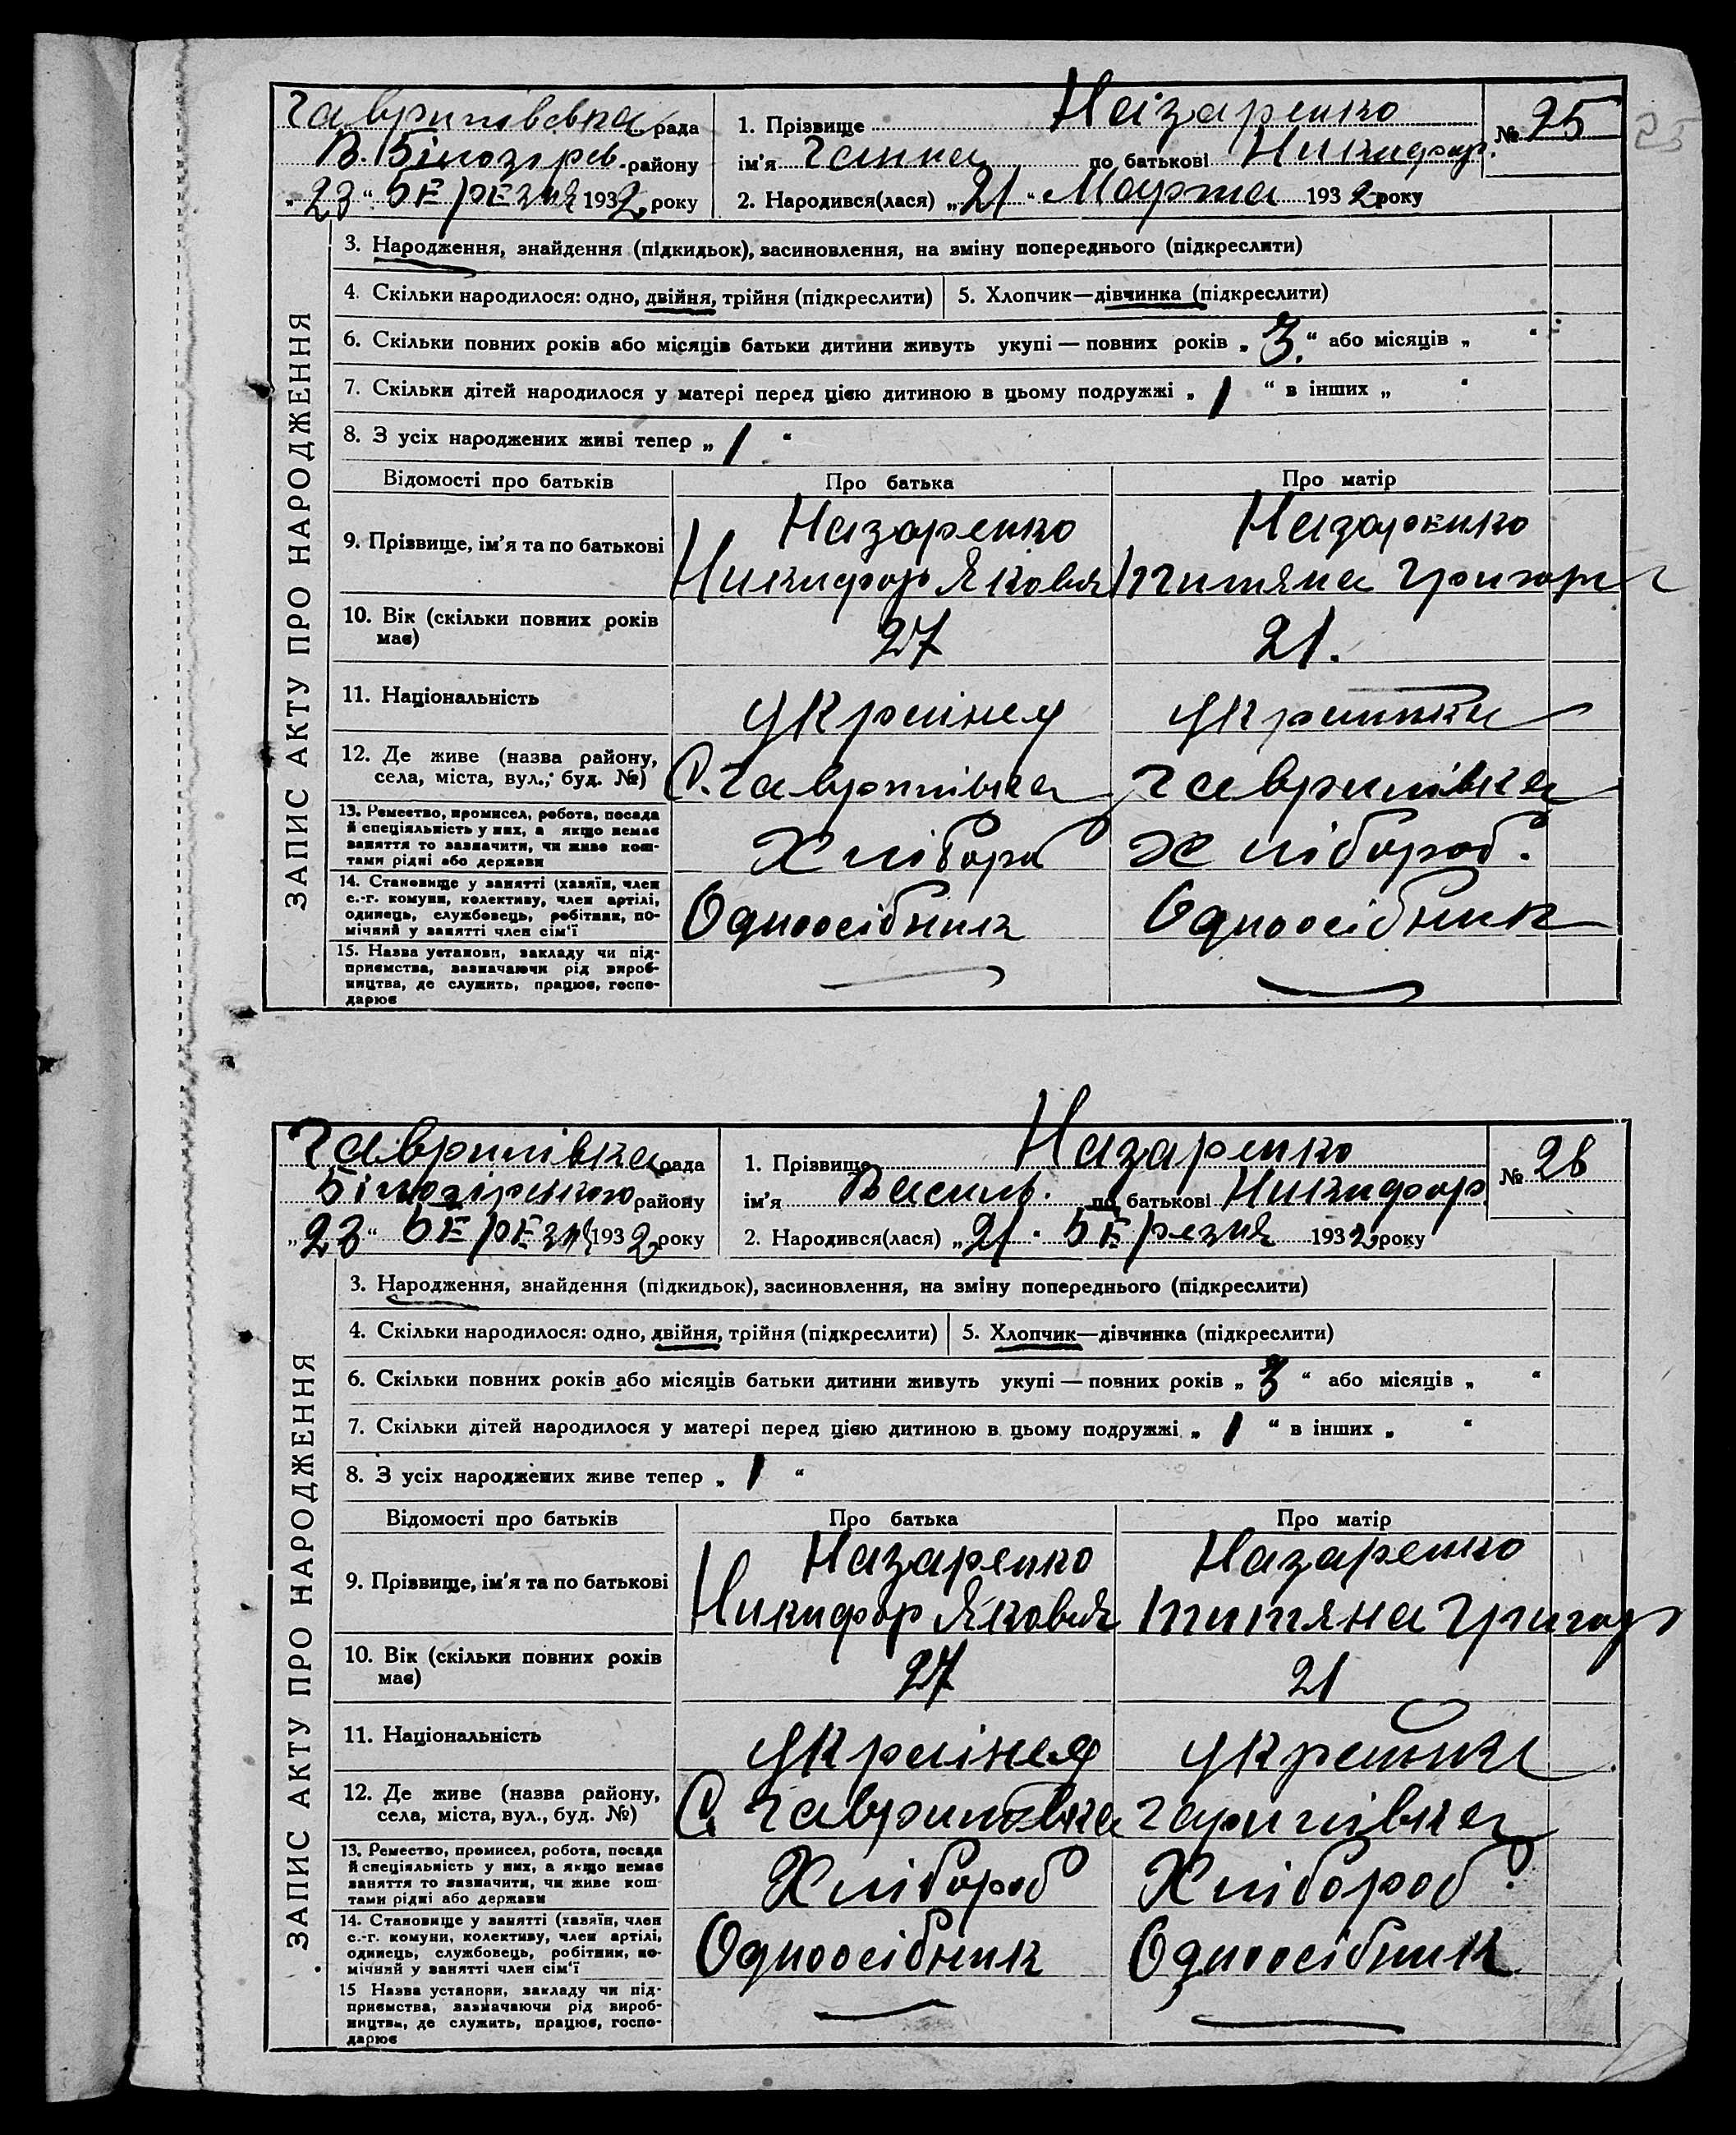 Гаврилівська рада
В. Білозірсь. району
„23“ БЕРЕЗНЯ 1932 року
1. Прізвище Назаренко
ім'я Ганна по батькові Никифор.
2. Народився(лася) „21“ Марта 1932 року
№ 25
25
ЗАПИС АКТУ ПРО НАРОДЖЕННЯ
3. Народження, знайдення (підкидьок), засиновлення, на зміну попереднього (підкреслити)
4. Скільки народилося: одно, двійня, трійня (підкреслити)
5. Хлопчик—дівчинка (підкреслити)
6. Скільки повних років або місяців батьки дитини живуть укупі — повних років „3.“ або місяців „ “
7. Скільки дітей народилося у матері перед цією дитиною в цьому подружжі „1“ в інших „ “
8. З усіх народжених живі тепер „1“
Відомості про батьків
Про батька
Про матір
9. Прізвище, ім'я та по батькові
Назаренко
Никифор Яковл
Назаренко
Титяна Григор
10. Вік (скільки повних років
має)
27
21.
11. Національність
Україней
Українка
12. Де живе (назва району,
села, міста, вул., буд. №)
С. Гаврилівка
Гаврилівка
13. Ремество, промисел, робота, посада
й спеціяльність у них, а якщо немає
заняття то зазначити, чи живе кош-
тами рідні або держави
Хлібороб
Хлібороб.
14. Становище у занятті (хазяїн, член
с.-г. комуни, колективу, член артілі,
одинець, службовець, робітник, по-
мічний у занятті член сім'ї
Одноосібник
Одноосібник
15. Назва установи, закладу чи під-
приємства, зазначаючи рід вироб-
ництва, де служить, працює, госпо-
дарює
Гаврилівка рада
Білозірського району
„23“ БЕРЕЗНЯ 1932 року
1. Прізвище Назаренко
ім'я Василь. по батькові Никифор
2. Народився(лася) „21“ БЕрезня 1932 року
№ 26
ЗАПИС АКТУ ПРО НАРОДЖЕННЯ
3. Народження, знайдення (підкидьок), засиновлення, на зміну попереднього (підкреслити)
4. Скільки народилося: одно, двійня, трійня (підкреслити)
5. Хлопчик—дівчинка (підкреслити)
6. Скільки повних років або місяців батьки дитини живуть укупі — повних років „3“ або місяців „ “
7. Скільки дітей народилося у матері перед цією дитиною в цьому подружжі „1“ в інших „ “
8. З усіх народжених живе тепер „1“
Відомості про батьків
Про батька
Про матір
9. Прізвище, ім'я та по батькові
Назаренко
Никифор Яковл
Назаренко
Титяна Григор
10. Вік (скільки повних років
має)
27
21
11. Національність
Україней
Українка
12. Де живе (назва району,
села, міста, вул., буд. №)
С. Гаврилівка
Гарилівка
13. Ремество, промисел, робота, посада
й спеціяльність у них, а якщо немає
заняття то зазначити, чи живе кош-
тами рідні або держави
Хлібороб
Хлібороб
14. Становище у занятті (хазяїн, член
с.-г. комуни, колективу, член артілі,
одинець, службовець, робітник, по-
мічний у занятті член сім'ї
Одноосібник
Одноосібник
15 Назва установи, закладу чи під-
приємства, зазначаючи рід вироб-
ництва, де служить, працює, госпо-
дарює